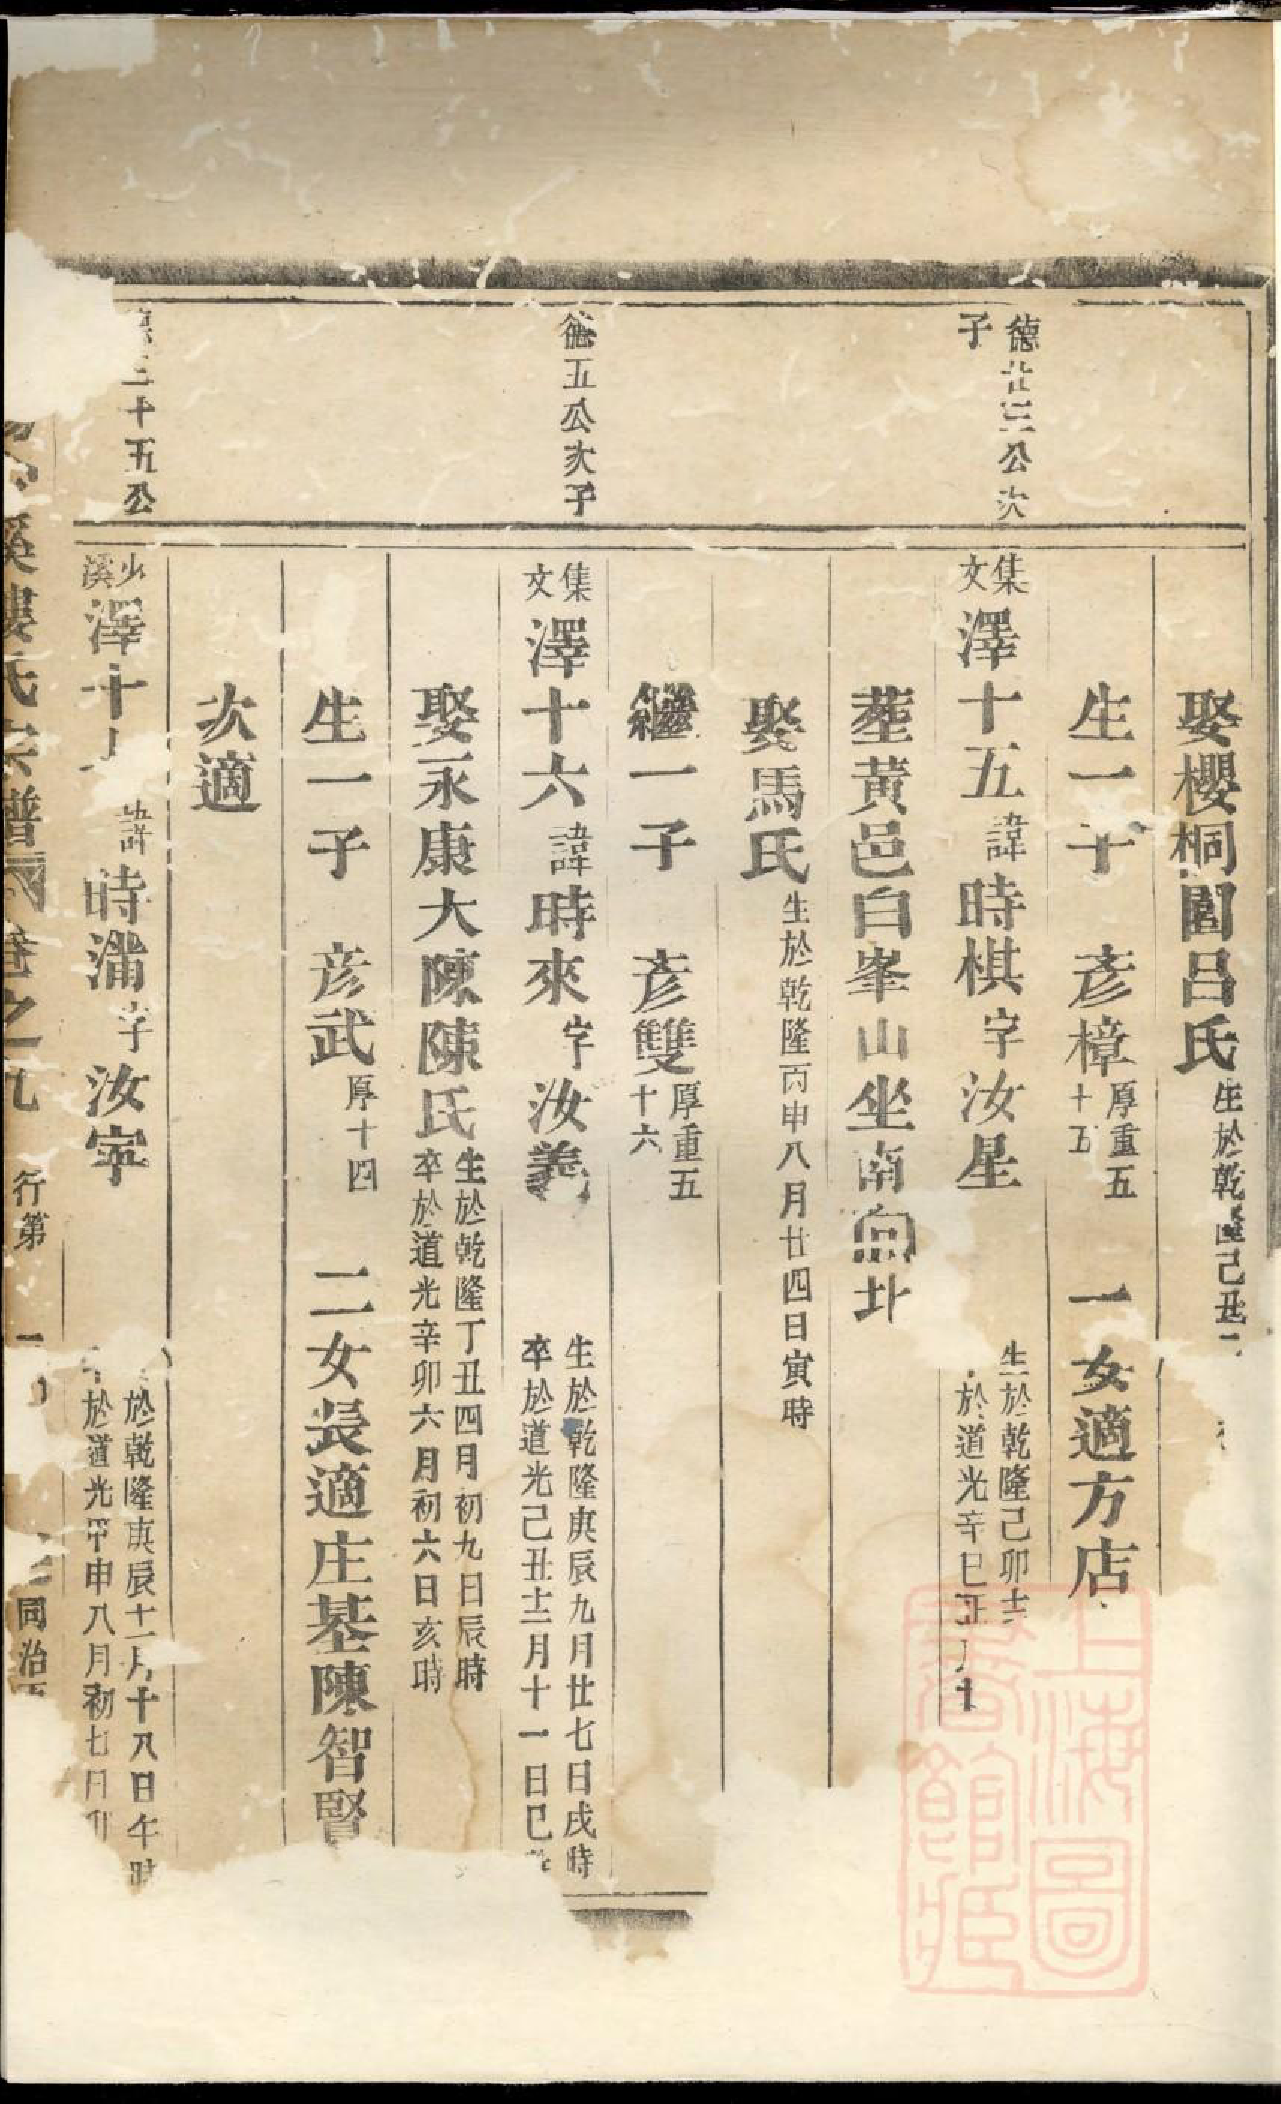 娶櫻桐閣呂氏生於乾隆己丑二
生一子 彥樟厚重五十五 一女適方店
德廿三公次子
集文澤十五諱時棋字汝星 生於乾隆己卯 於道光辛巳正月十
葬黃邑白峯山坐南向北
娶馬氏生於乾隆丙申八月廿四日寅時
繼一子 彥雙厚重五十六
德五公次子
集文澤十六諱時來字汝義 生於乾隆庚辰九月廿七日戌時卒於道光己丑十二月十一日巳
娶永康大陳陳氏生於乾隆丁丑四月初九日辰時卒於道光辛卯六月初六日亥時
生一子 彥武厚十四 二女長適庄基陳智賢
次適
三十五公
少溪澤十 諱時滿字汝寧 於乾隆庚辰十一月十八日午時 於道光甲申八月初七日
溪樓氏宗譜 卷之九 行第 一 同治
上海圖書館藏